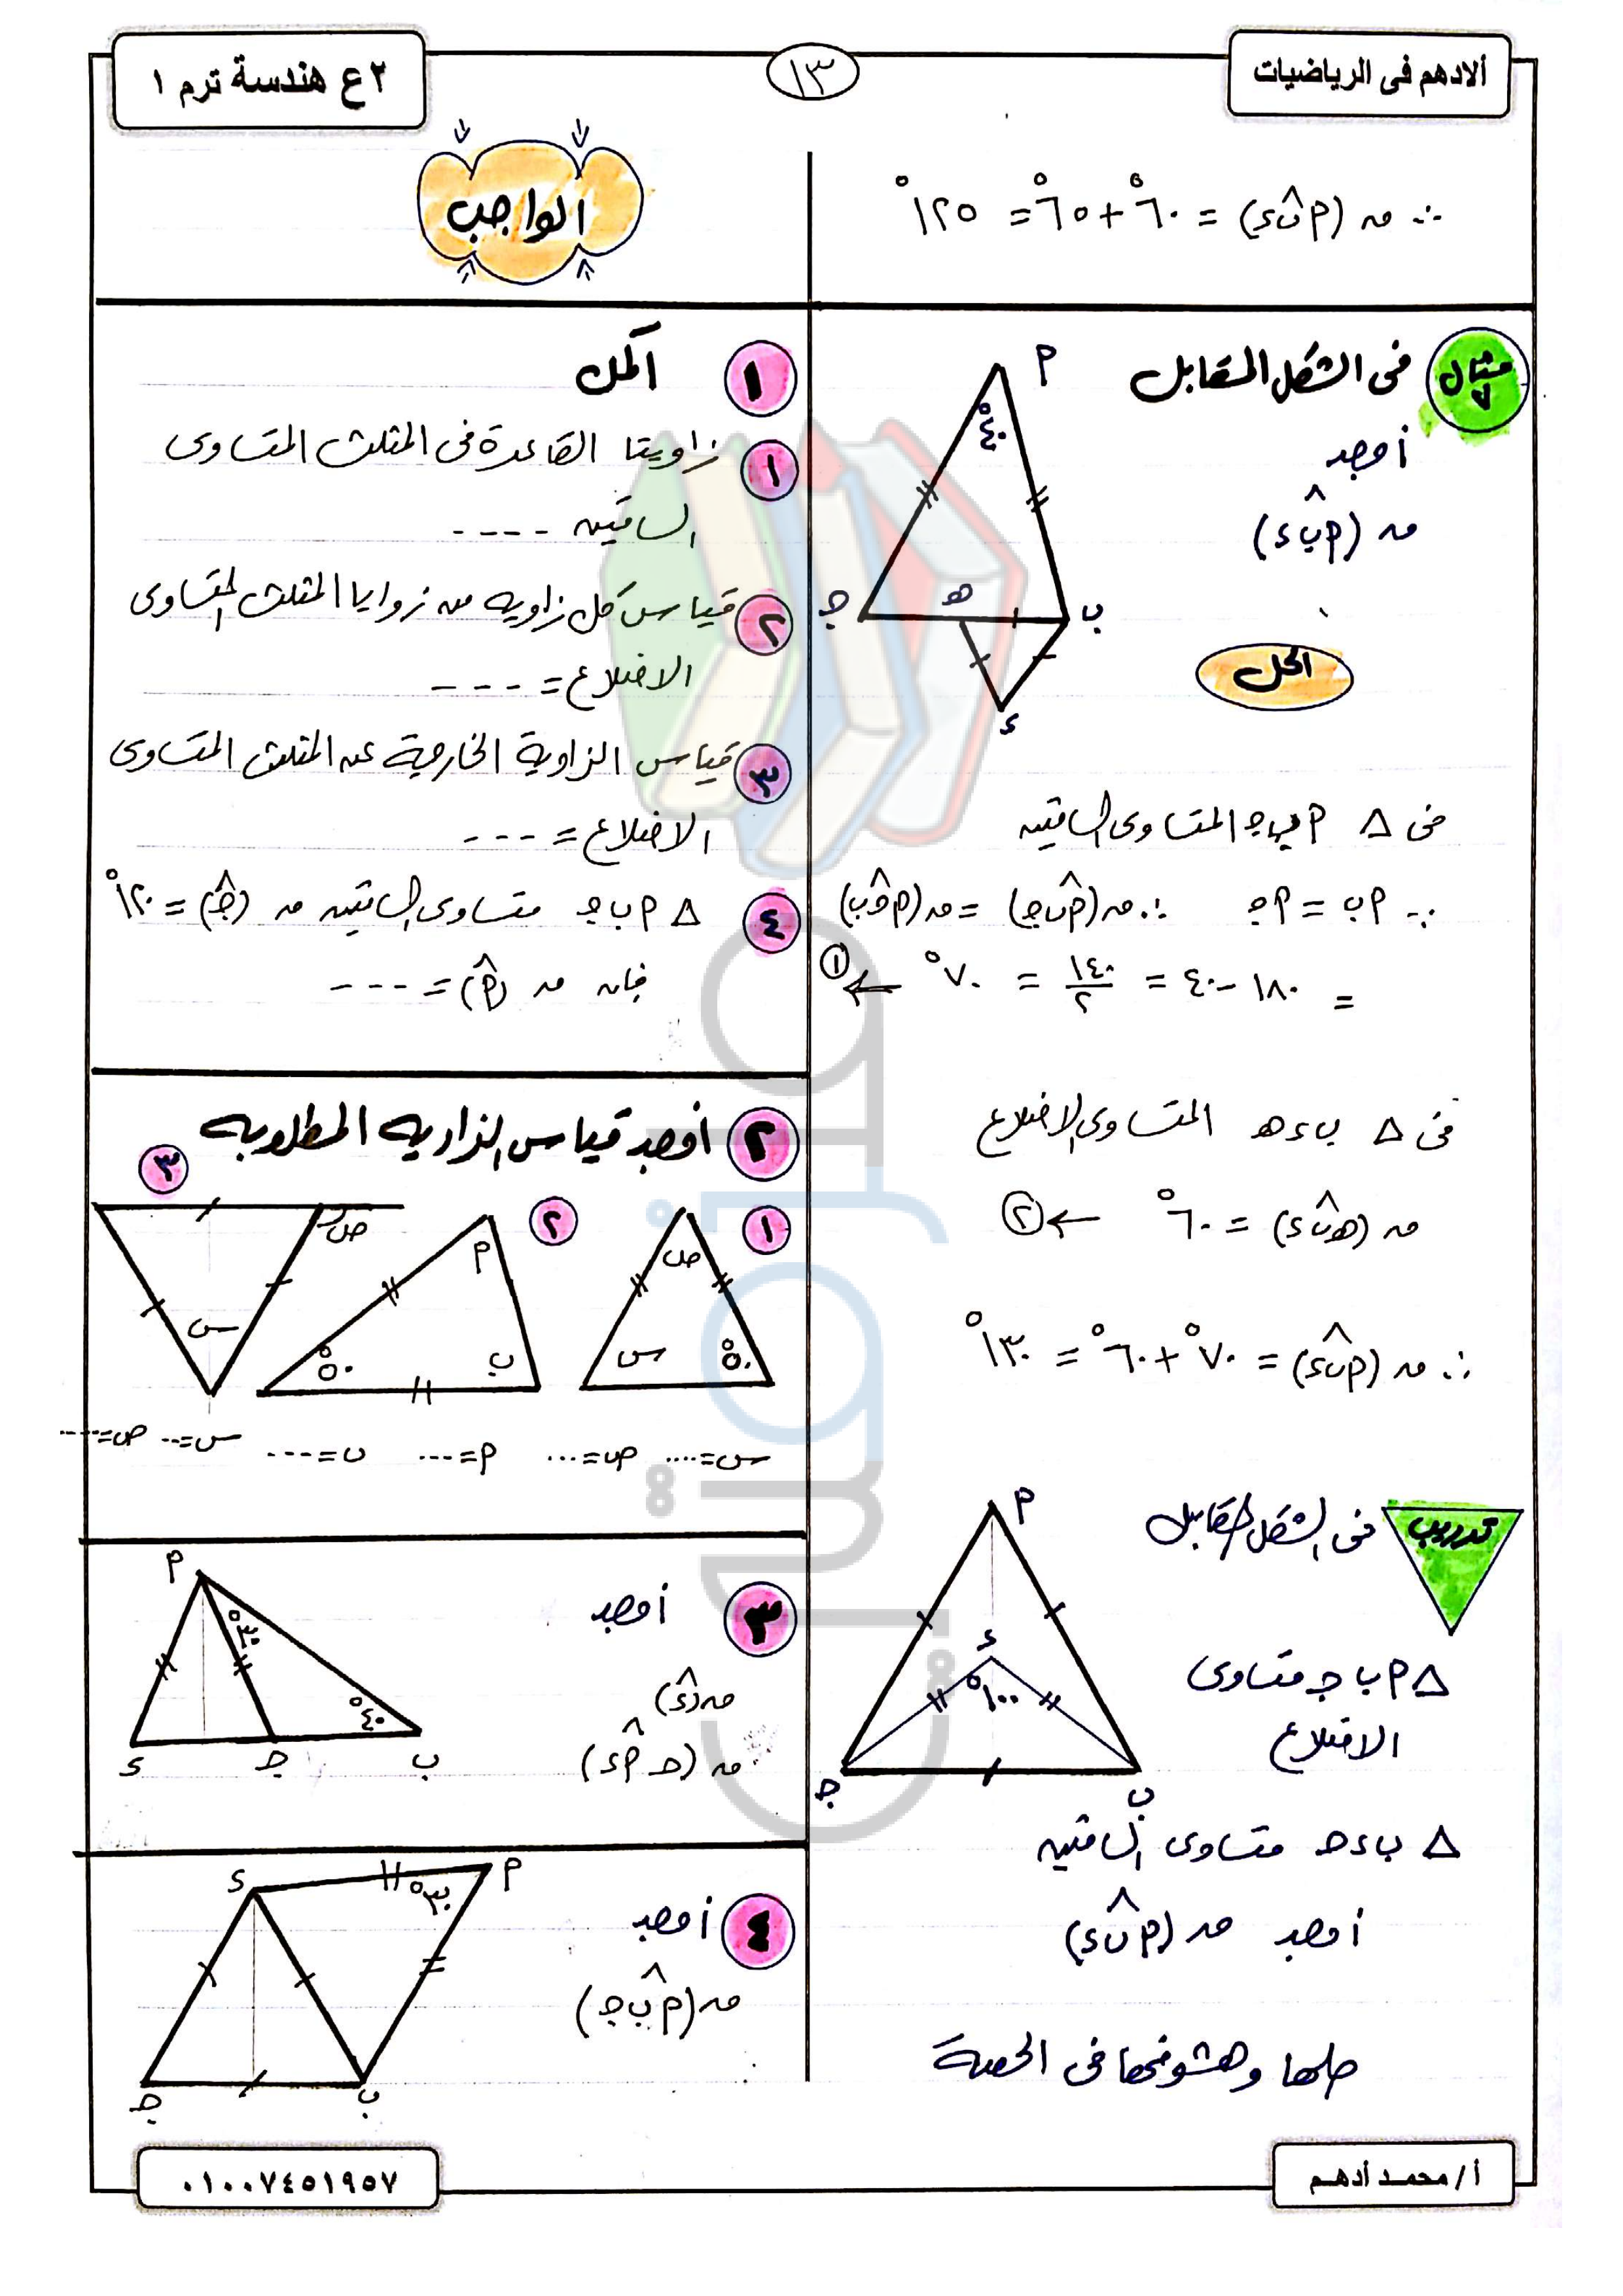 ألادهم فى الرياضيات
١٣
٢ع هندسة ترم ١
∴ ق (أب̂ء) = ٦٠° + ٦٥° = ١٢٥°
مثال ٧
فى الشكل المقابل
أوجد
ق (أب̂ء)
أ
٤٠°
ج
ه
ب
ء
الحل
فى △ أ ب ج المتساوى الساقين
∵ أب = أج ∴ ق (أب̂ج) = ق (أج̂ب)
= ١٨٠ - ٤٠ = ١٤٠/٢ = ٧٠° ← ①
فى △ ب ء ه المتساوى الاضلاع
ق (هب̂ء) = ٦٠° ← ②
∴ ق (أب̂ء) = ٧٠° + ٦٠° = ١٣٠°
تدريب
فى الشكل المقابل
أ
ء
١٠٠°
ج
ب
△ أ ب ج متساوى
الاضلاع
△ ب ء ح متساوى الساقين
أوجد ق (أب̂ء)
حلها وهشوفها فى الحصة
الواجب
١ أكمل
١ زاويتا القاعدة فى المثلث المتساوى
الساقين ----
٢ قياس كل زاويه من زوايا المثلث المتساوى
الاضلاع = ---
٣ قياس الزاوية الخارجية عن المثلث المتساوى
الاضلاع = ---
٤ △ أ ب ج متساوى الساقين ق (ج̂) = ١٢٠°
فإن ق (أ̂) = ---
٢ أوجد قياس الزاويه المطلوبه
١
ص
س
٥٠°
٢
أ
٥٠°
ب
٣
ص
س
س=.... ص=...
أ=... ب=---
س=-- ص=----
٣ أوجد
ق (ء̂)
ق (ح أ̂ ء)
أ
٣٠°
٤٠°
ء
ح
ب
٤ أوجد
ق (أب̂ج)
ء
أ
٣٠°
ج
ب
أ/ محمد أدهم
٠١٠٠٧٤٥١٩٥٧